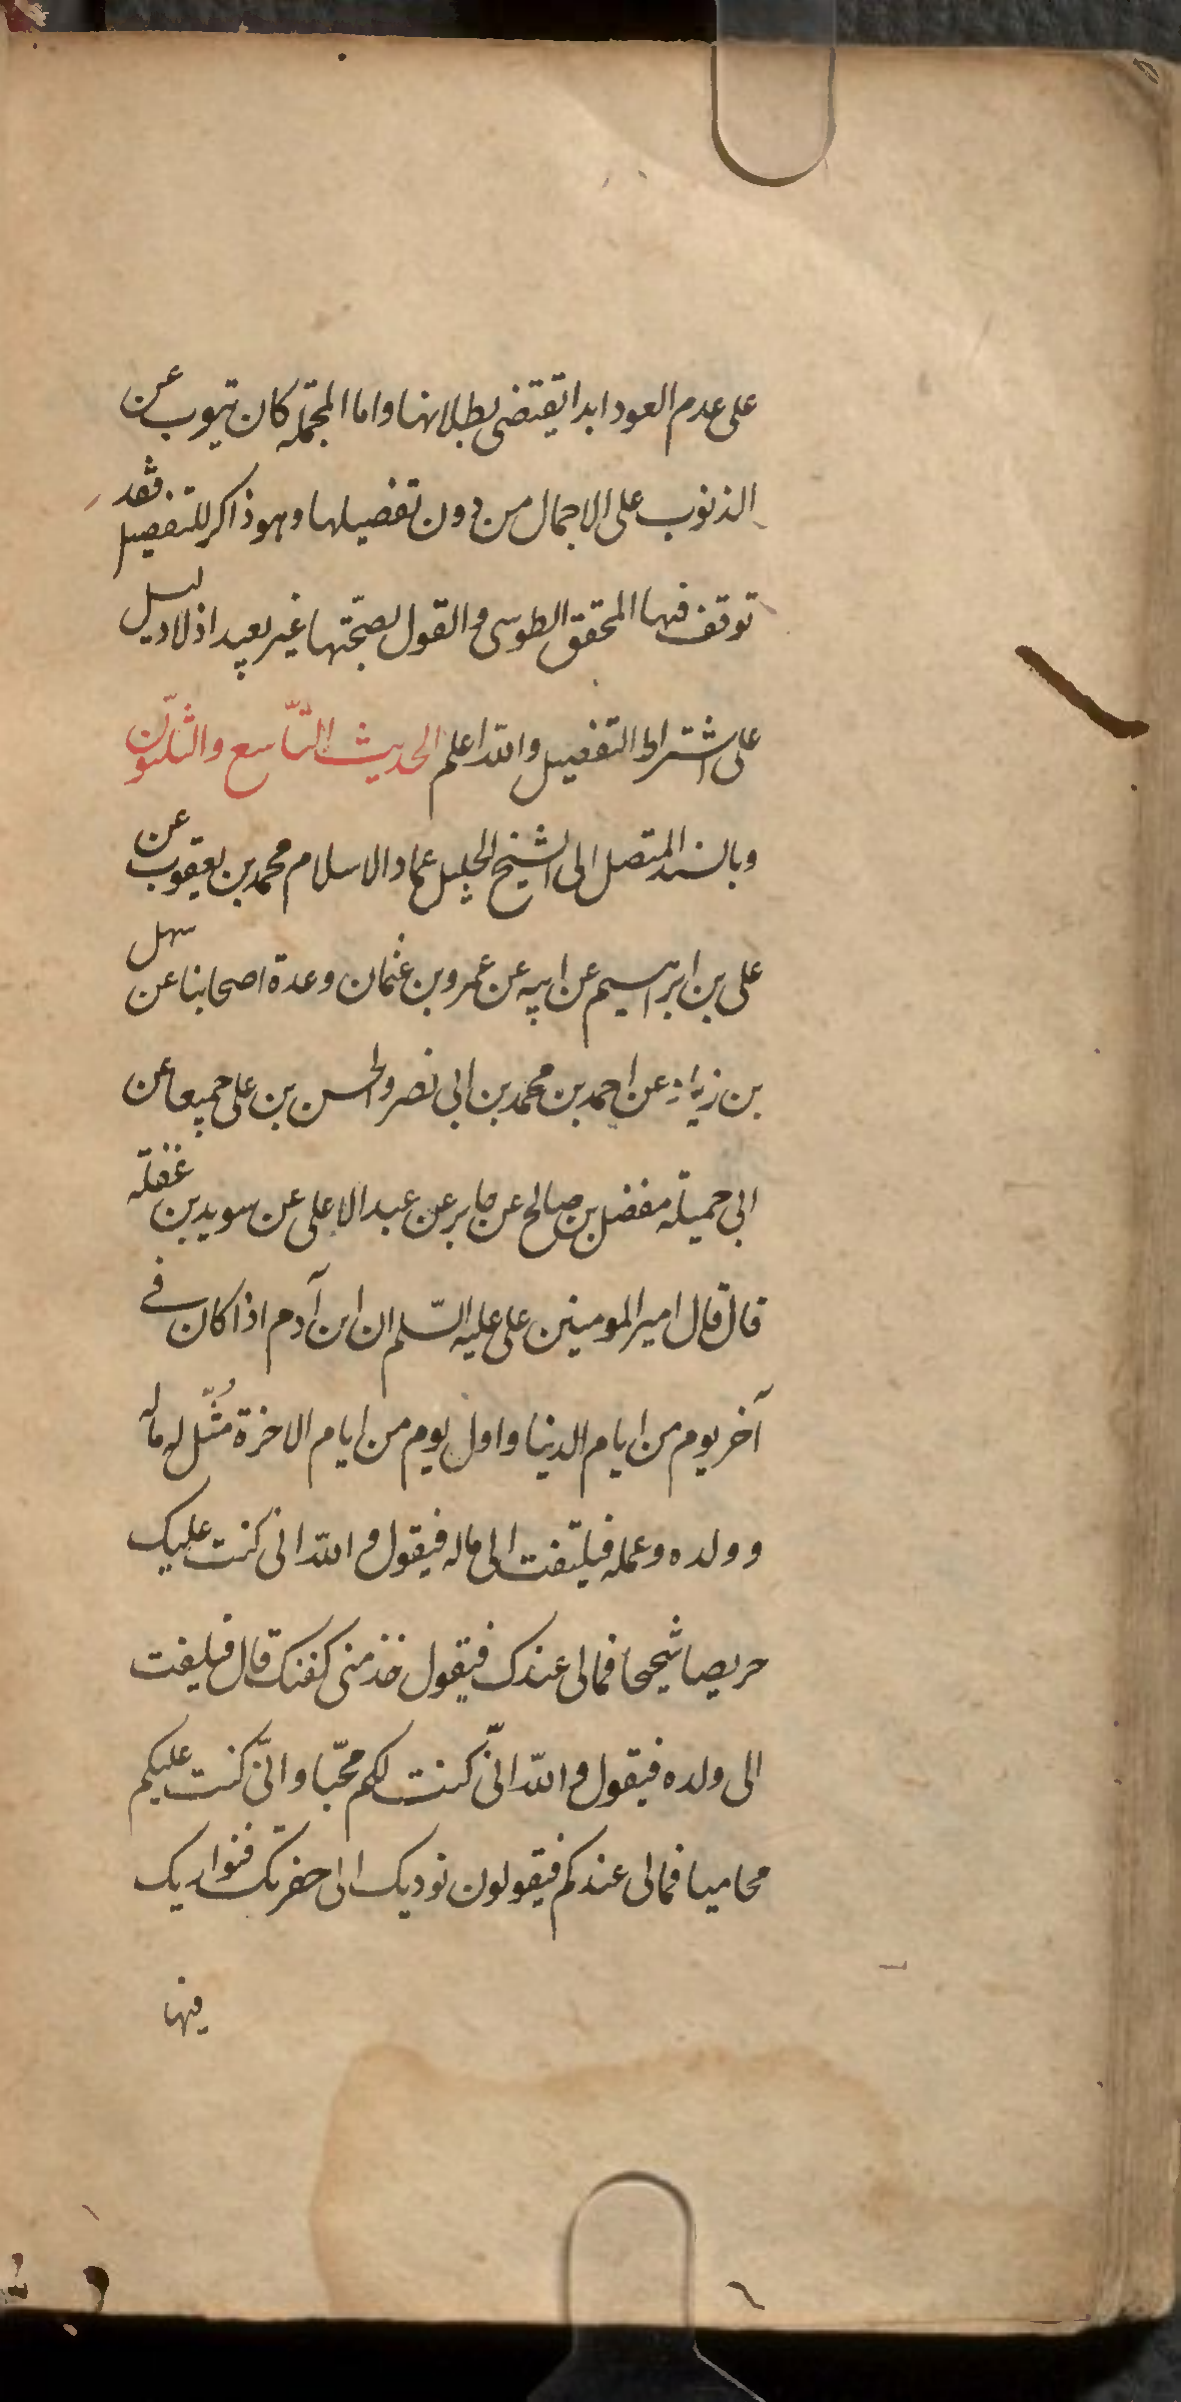 على عدم العود ابدا يقتضى بطلانها واما المجملة كان يتوب عن
الذنوب على الاجمال من دون تفصيلها وهو ذاكر للتفصيل فقد
توقف فيها المحقق الطوسى والقول بصحّتها غير بعيد اذ لا دليل
على اشتراط التفصيل والله اعلم الحديث التّاسع والثلثون
وبالسند المتصل الى الشيخ الجليل عماد الاسلام محمد بن يعقوب عن
على بن ابراهيم عن ابيه عن عمرو بن عثمان وعدة اصحابنا عن سهل
بن زياد عن احمد بن محمد بن ابى نصر والحسن بن على جميعا عن
ابى جميلة مفضل بن صالح عن جابر عن عبد الاعلى عن سويد بن غفلة
قال قال امير المومنين على عليه السّلم ان ابن آدم اذا كان فى
آخر يوم من ايام الدنيا واول يوم من ايام الاخرة مُثّل له ماله
وولده وعمله فيلتفت الى ماله فيقول والله انى كنت عليك
حريصا شحيحا فمالى عندك فيقول خذ منى كفنك قال فيلفت
الى ولده فيقول والله انّى كنت لكم محبّا وانّى كنت عليكم
محاميا فمالى عندكم فيقولون نوديك الى حفرتك فنواريك
فيها